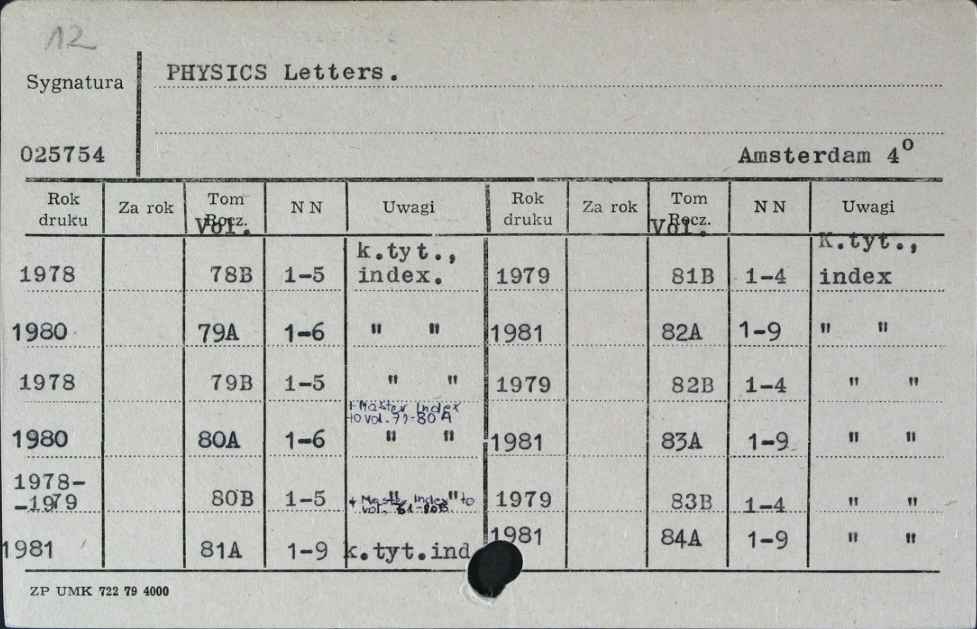 12
Sygnatura PHYSICS Letters.
025754 Amsterdam 4º
Rok druku Za rok Tom Rocz. Vol. N N Uwagi Rok druku Za rok Tom Rocz. Vol. N N Uwagi
1978 78B 1-5 k.tyt., index. 1979 81B 1-4 k.tyt., index
1980 79A 1-6 " " 1981 82A 1-9 " "
1978 79B 1-5 " " 1979 82B 1-4 " "
1980 80A 1-6 + Master Index to vol. 71-80 A " " 1981 83A 1-9 " "
1978-
-1979 80B 1-5 " " + Master Index to vol. 61-80B 1979 83B 1-4 " "
1981 81A 1-9 k.tyt.ind 1981 84A 1-9 " "
ZP UMK 722 79 4000